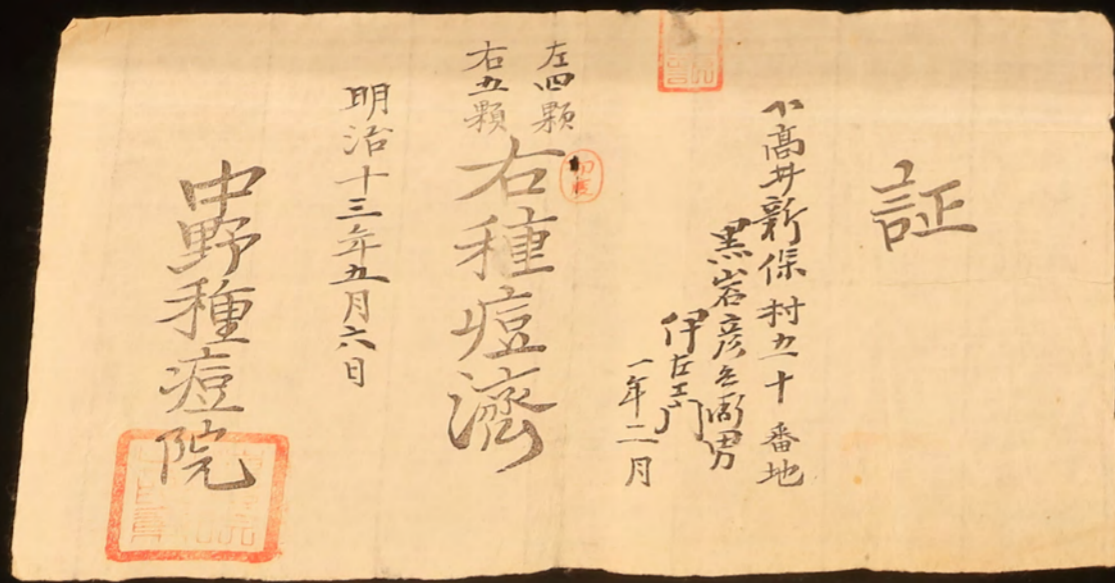 証
下高井新保村五十番地
黒岩彦兵衛男
伊左エ門
一年二月
初度
左四顆
右五顆
右種痘濟
明治十三年五月六日
中野種痘院